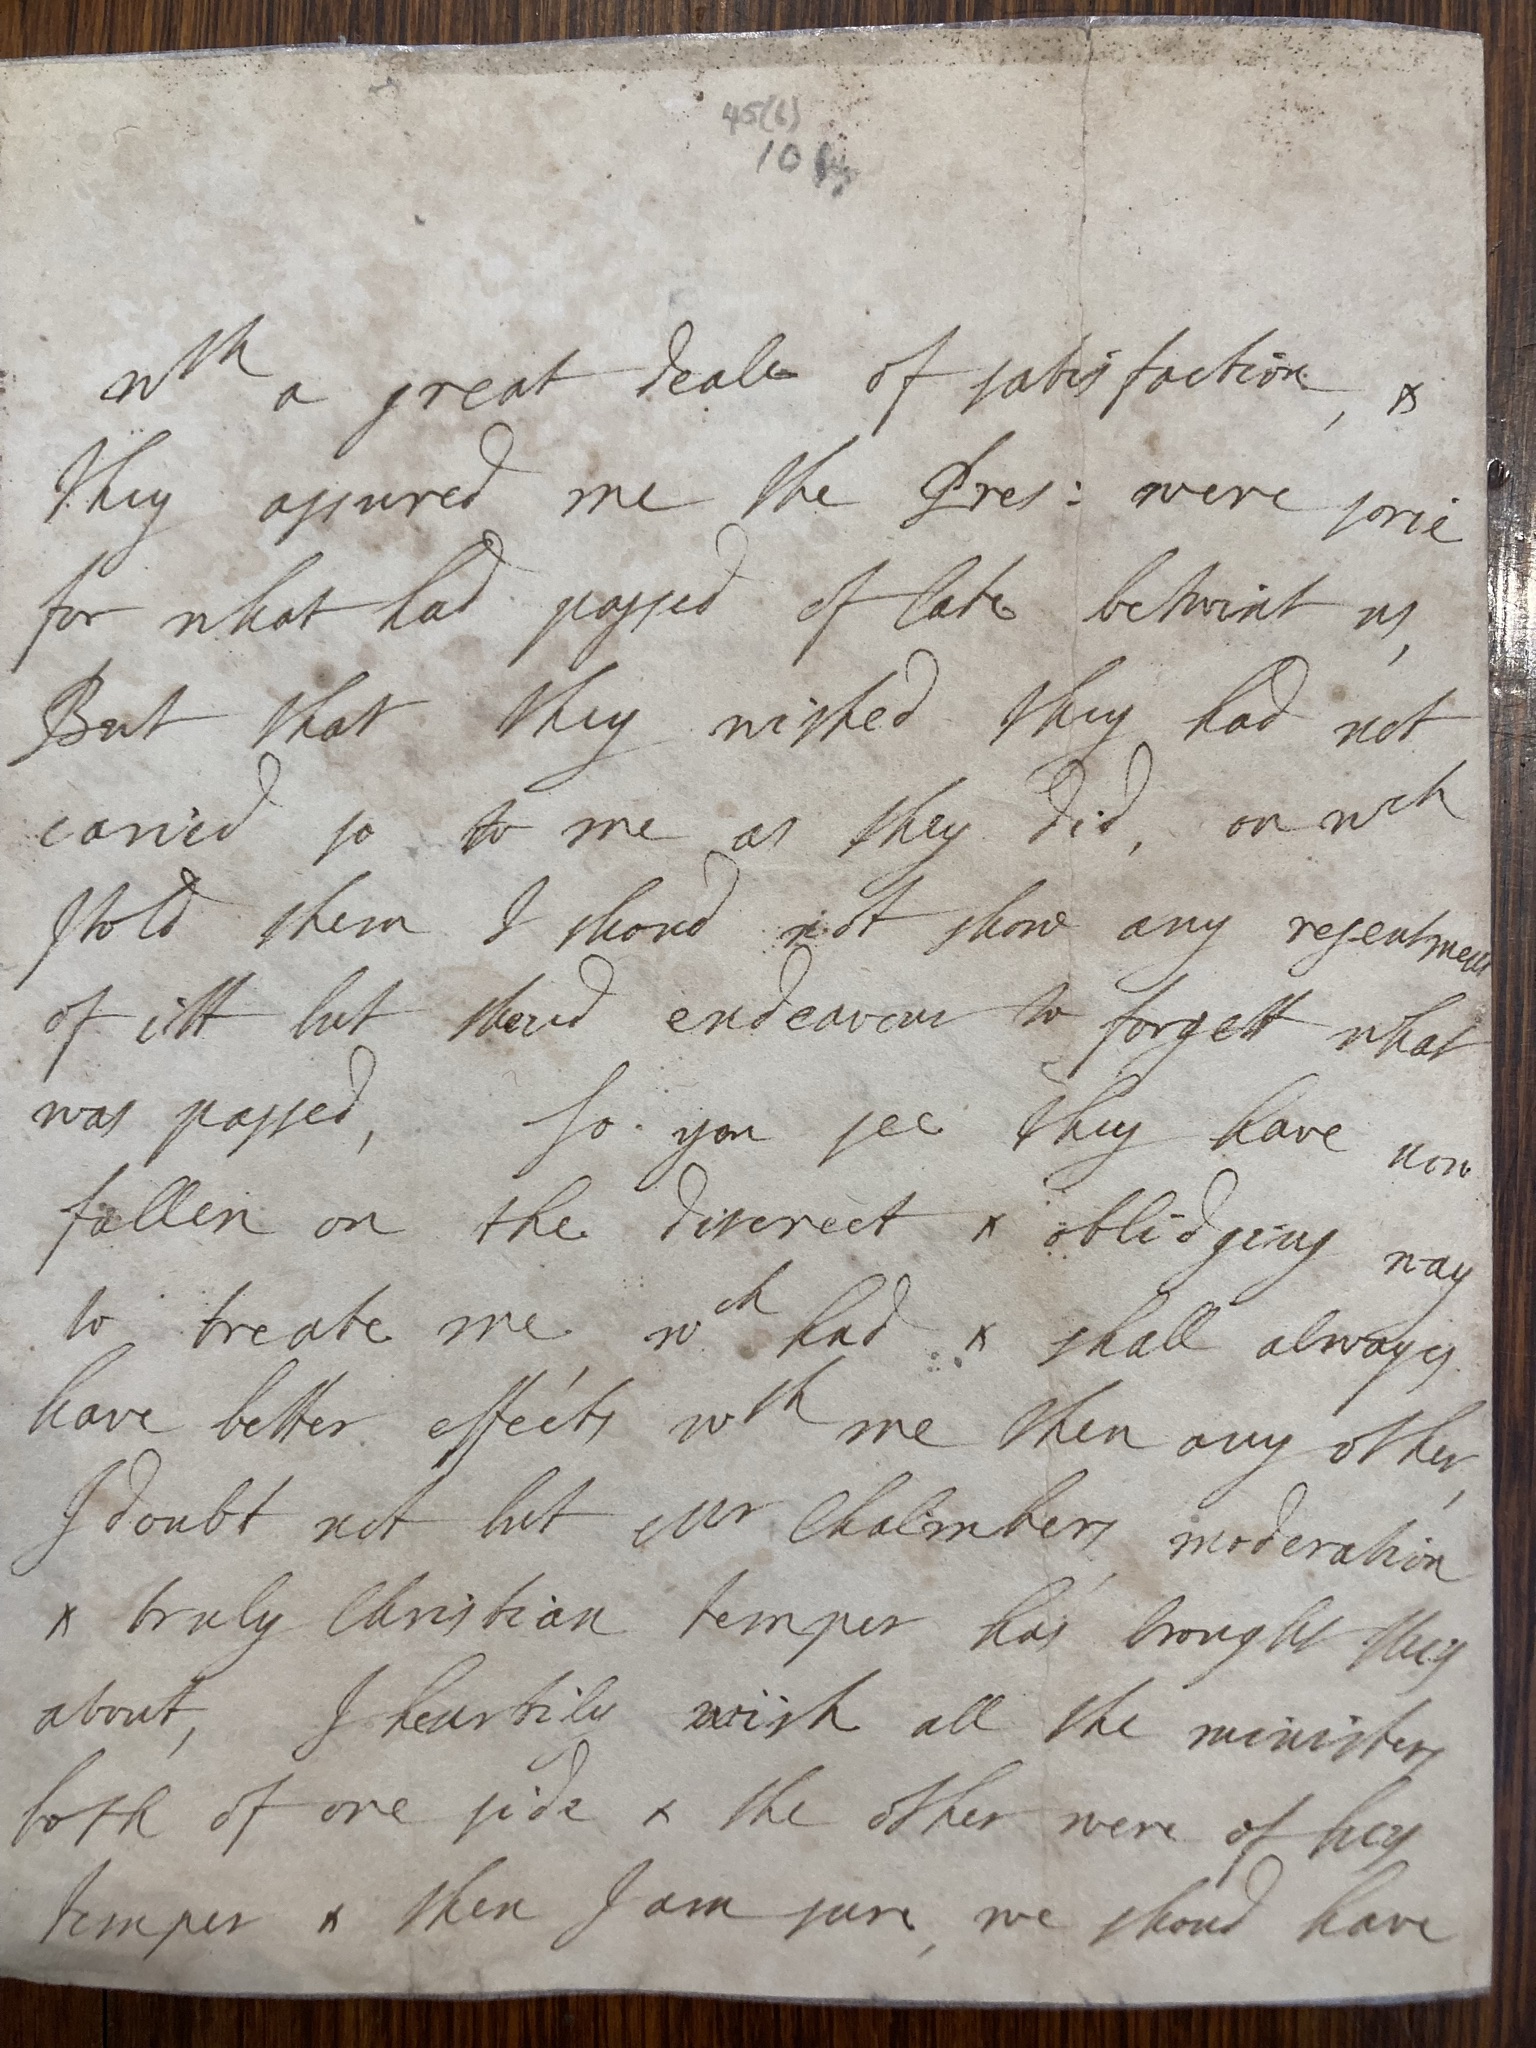 45(6)
10
wth a great deale of satisfaction, &
they assured me the Pres: were sorie
for what had passed of late betwixt us,
But that they wished they had not
caried so to me as they did, on wch
I told them I shoud not show any resentment
of itt but shoud endeavour to forgett what
was passed, So you see they have now
fallen on the discreet & oblidging way
to treate me wch had & shall always
have better effects wth me then any other,
I doubt not but Mr Chalmbers moderation
& truly Christian temper has brought this
about, I heartily wish all the ministers
both of one side & the other were of his
temper & then I am sure, we shoud have